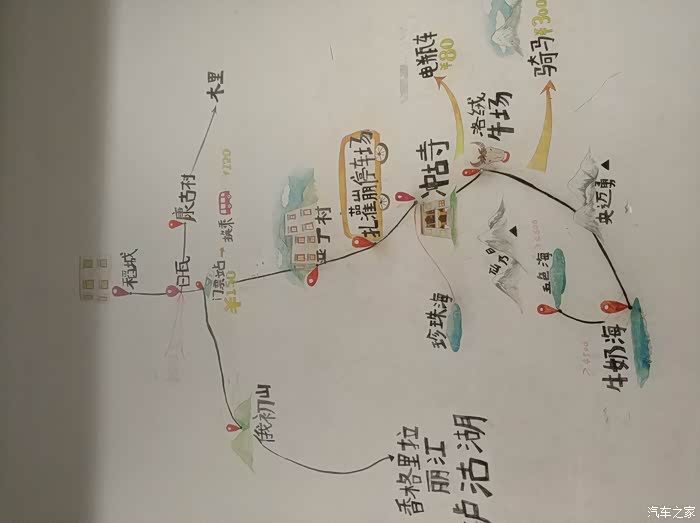 稻城
日瓦
康古村
木里
门票站→换乘
¥150
¥120
亚丁村
扎灌崩停车场
冲古寺
电瓶车
¥80
洛绒
牛场
骑马
¥300
珍珠海
仙乃日
央迈勇
五色海
牛奶海
俄初山
香格里拉
丽江
泸沽湖
汽车之家